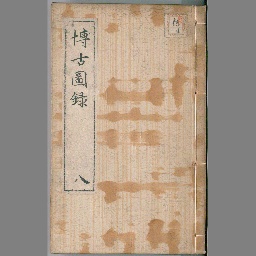 博古圖錄 八